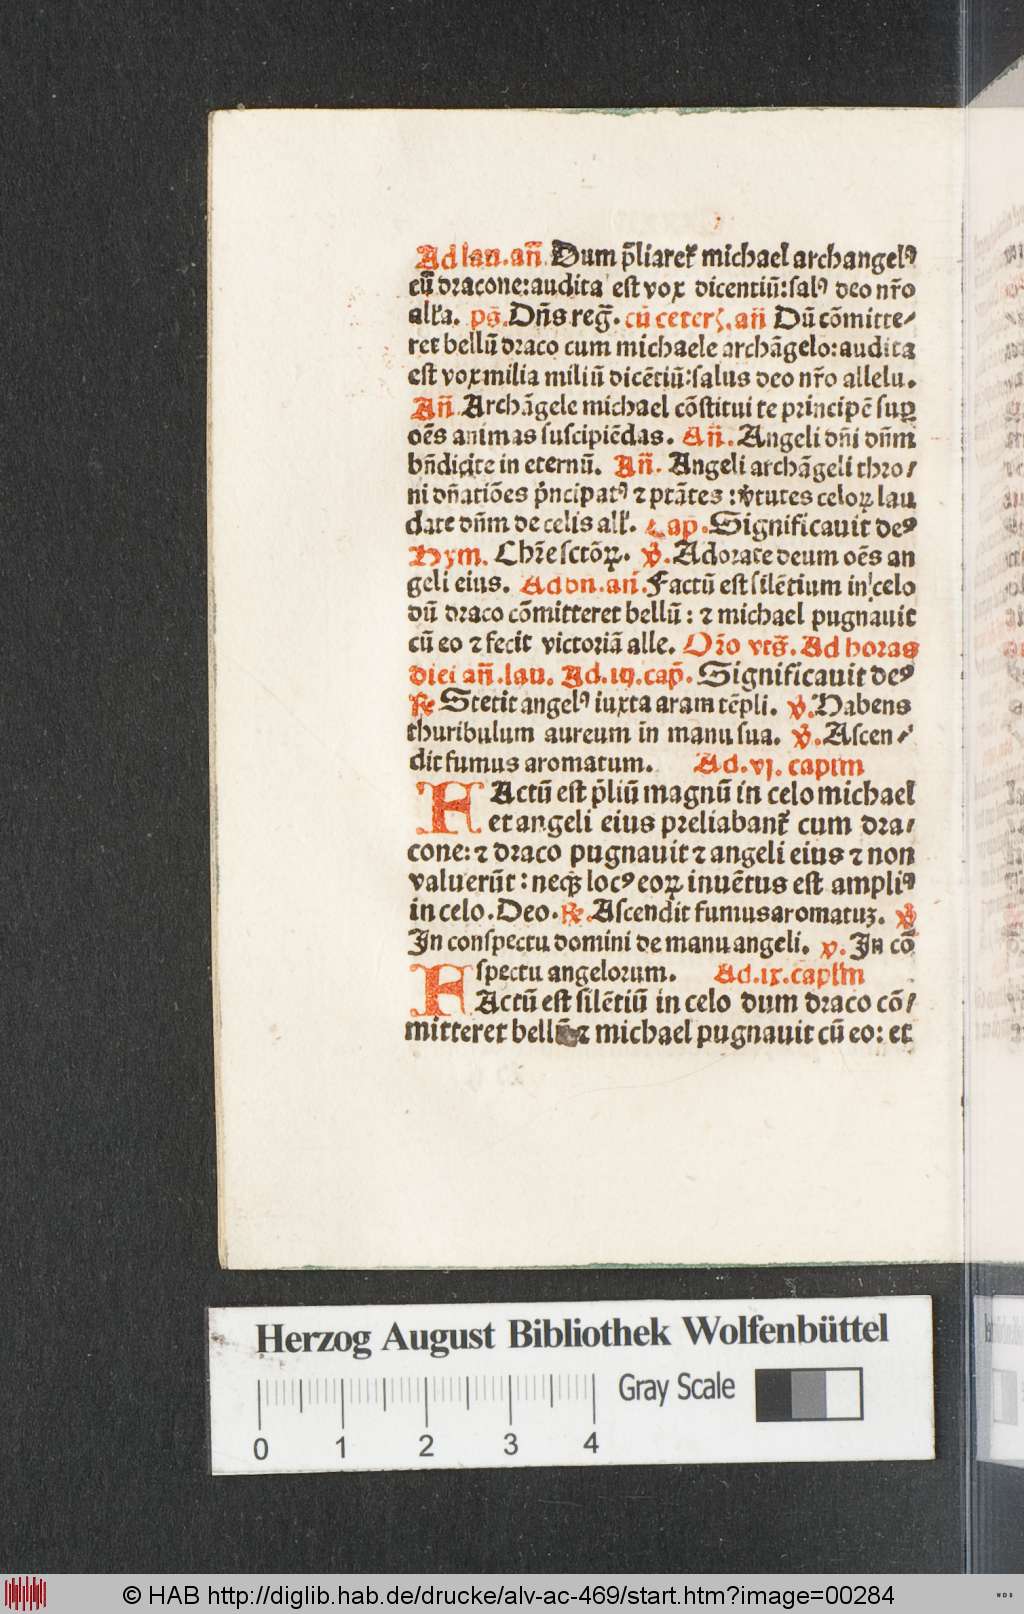 Ad lau. añ. Dum p̄liareť michael archangelꝰ
cū dracone: audita est vox dicentiū: salꝰ deo nr̄o
all'a. pš. Dñs reg̃. cū ceterꝭ. añ Dū cōmitte⸗
ret bellū draco cum michaele archāgelo: audita
est vox milia miliū dicētiū: salus deo nr̄o allelu.
Añ. Archāgele michael cōstitui te principē suꝑ
oēs animas suscipiēdas. Añ. Angeli dñi dñm
bñdicite in eternū. Añ. Angeli archāgeli thro⸗
ni dñatiōes p̄ncipatꝰ ⁊ ptātes: v̓tutes celoꝝ lau
date dñm de celis all'. Cap̄. Significauit deꝰ
Hym. Chr̄e sctōꝝ. ℣. Adorate deum oēs an
geli eius. Ad bñ. añ. Factū est silētium in celo
dū draco cōmitteret bellū: ⁊ michael pugnauit
cū eo ⁊ fecit victoriā alle. Or̄o vts̄. Ad horas
diei añ. lau. Ad .iij. cap̄. Significauit deꝰ
℟ Stetit angelꝰ iuxta aram tēpli. ℣. Habens
thuribulum aureum in manu sua. ℣. Ascen⸗
dit fumus aromatum. Ad .vj. captm
FActū est p̄liū magnū in celo michael
et angeli eius preliabanť cum dra⸗
cone: ⁊ draco pugnauit ⁊ angeli eius ⁊ non
valuerūt: neqꝫ locꝰ eoꝝ inuētus est ampliꝰ
in celo. Deo. ℟. Ascendit fumus aromatuꝫ. ℣
In conspectu domini de manu angeli. ℣. In cō
spectu angelorum. Ad .ix. caplm
FActū est silētiū in celo dum draco cō⸗
mitteret bellū ⁊ michael pugnauit cū eo: et
Herzog August Bibliothek Wolfenbüttel
Gray Scale
0 1 2 3 4
© HAB http://diglib.hab.de/drucke/alv-ac-469/start.htm?image=00284